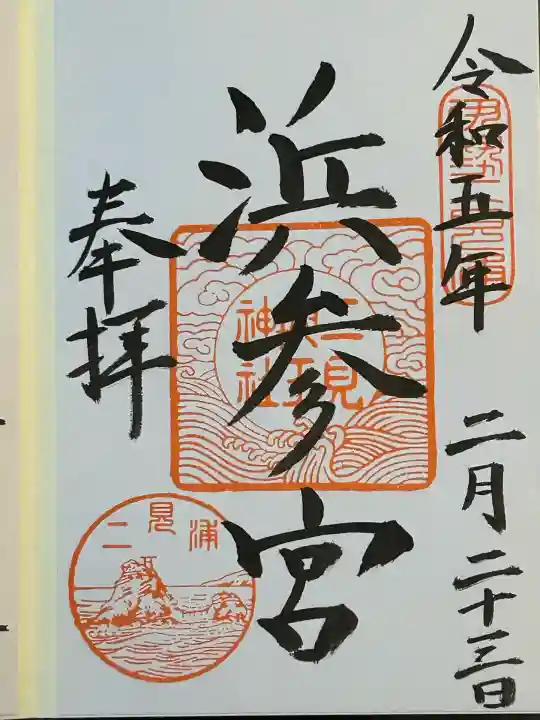 令和五年 二月二十三日
伊勢二見
浜参宮
二見興玉神社
奉拝
二見浦